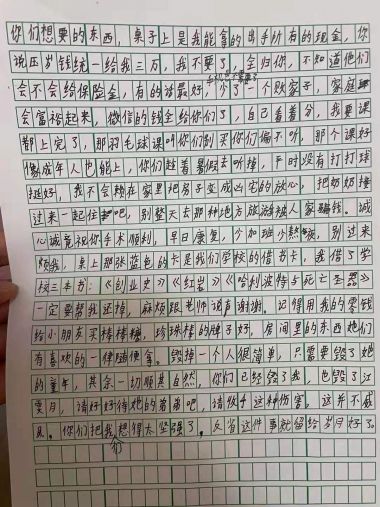 你们想要的东西，桌子上是我能拿的出手所有的现金，你
说压岁钱统一给我三万，我不要了，全归你，不知道他们
会不会给保险金，有的话最好，少了一个败家子，家庭
会富裕起来，微信的钱全给你们了，自己看着分，我要课
都上完了，那羽毛球课叫你们别买你们偏不听，那个课好
像成年人也能上，你们趁着暑假去听掉，平时没有打打球
挺好，我不会赖在家里把房子变成凶宅的放心，把奶奶接
过来一起住吧，别整天去那种地方放派被人家骗钱。诚
心诚意祝你手术顺利，早日康复，少加班少熬夜，别过来
陪我，桌上那张蓝色的卡是我们学校的借书卡，我借了学
校三本书：《创业史》《红岩》《哈利波特与死亡圣器》
一定要帮我还掉，麻烦跟老师说声谢谢。记得用我的零钱
给小朋友买棒棒糖，珍珠棒的牌子好，房间里的东西她们
有喜欢的一律随便拿。毁掉一个人很简单，只需要毁了她
的童年，其余一切顺其自然，你们已经毁了我，也毁了江
奕月，请好好待她的弟弟吧，请收手这种伤害，这并不威
风。你们把我们想得太坚强了。反省这件事就留给岁月好了。